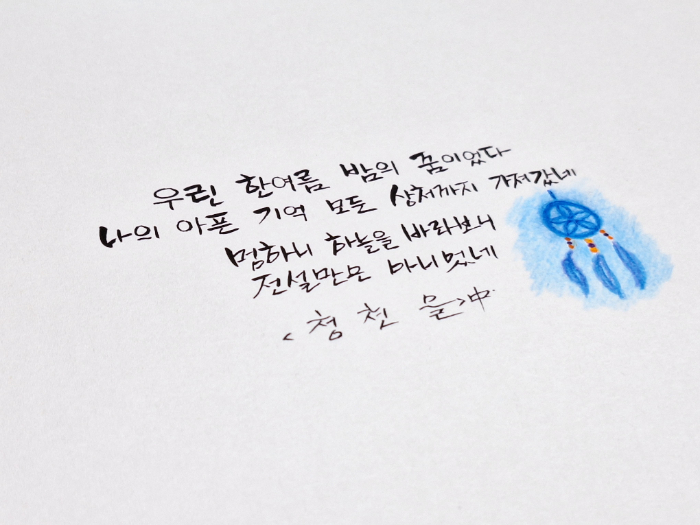 우린 한여름 밤의 꿈이었다
나의 아픈 기억 모든 상처까지 가져갔네
멍하니 하늘을 바라보니
전설만은 아니었네
<청천 을>中